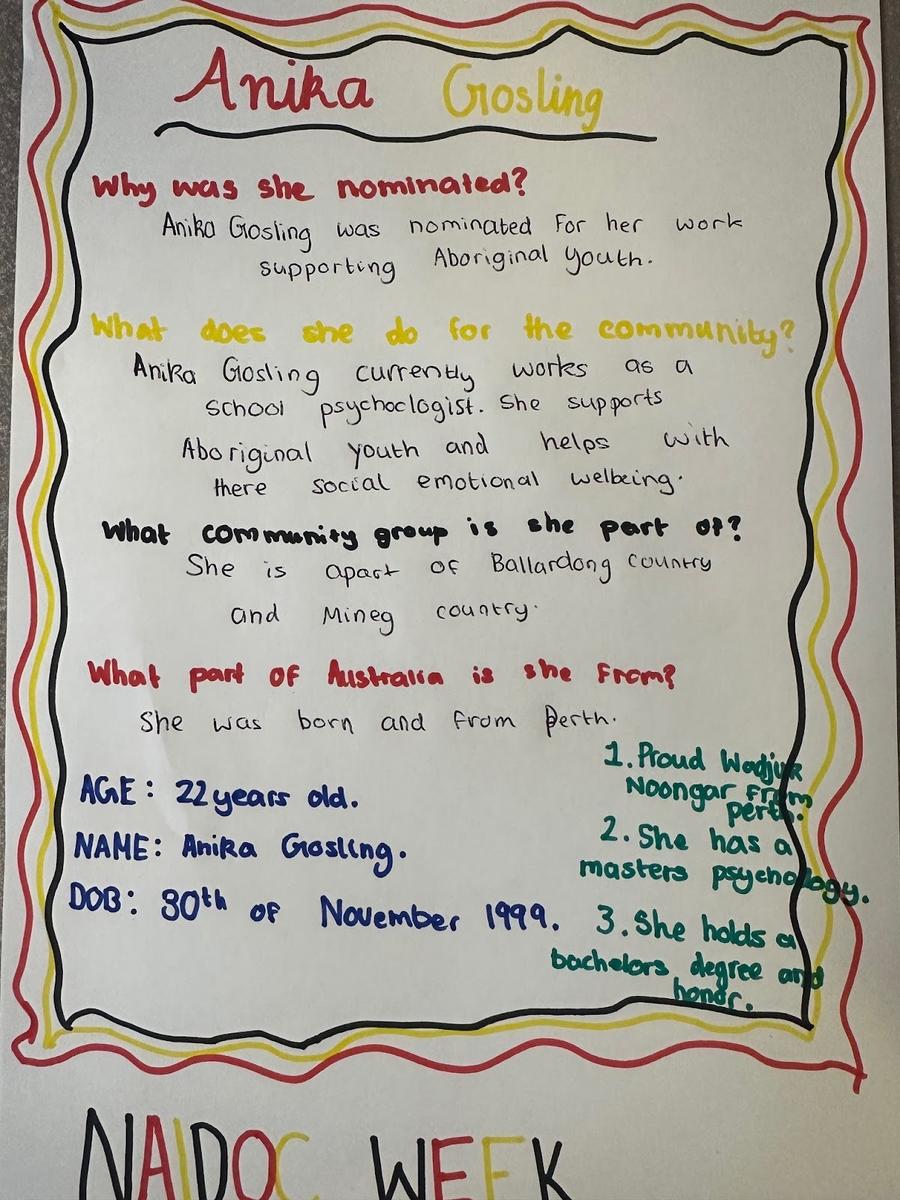 Anika Gosling
Why was she nominated?
Anika Gosling was nominated for her work
supporting Aboriginal youth.
What does she do for the community?
Anika Gosling currently works as a
school psychoclogist. She supports
Aboriginal youth and helps with
there social emotional welbeing.
What community group is she part of?
She is apart of Ballardong country
and Mineg country.
What part of Australia is she from?
She was born and from Perth.
AGE: 22 years old.
NAME: Anika Gosling.
DOB: 30th of November 1999.
1. Proud Wadjuk
Noongar from
perth.
2. She has a
masters psychology.
3. She holds a
bachelors degree and
honor.
NAIDOC WEEK